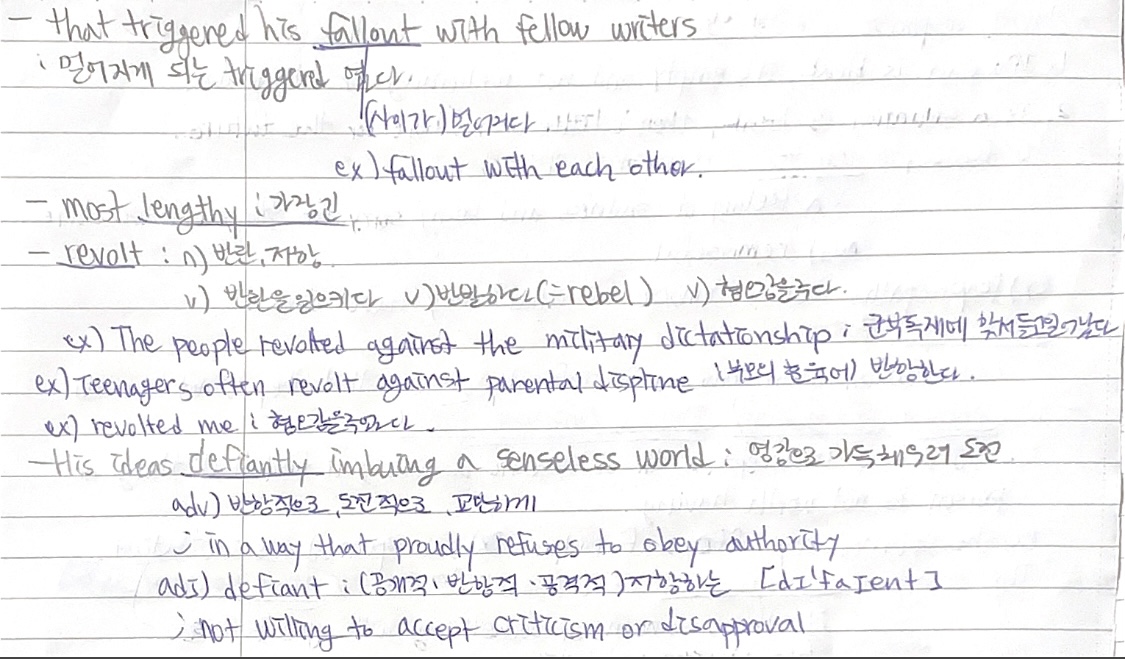 - that triggered his fallout with fellow writers
: 멀어지게 되는 triggered 였다.
(사이가) 멀어지다.
ex) fallout with each other.
- most lengthy : 가장 긴
- revolt : n) 반란, 저항
v) 반란을 일으키다 v) 반발하다 (=rebel) v) 혐오감을 주다.
ex) The people revolted against the military dictationship : 군부독재에 맞서 들고 일어났다
ex) Teenagers often revolt against parental displine (부모의 훈육에) 반항한다.
ex) revolted me : 혐오감을 주었다.
- His ideas defiantly imbuing a senseless world : 영감으로 가득 채우려 도전
adv) 반항적으로, 도전적으로, 교만하게
; in a way that proudly refuses to obey authority
adj) defiant : (공개적·반항적·공격적) 저항하는 [dɪ'faɪənt]
; not willing to accept criticism or disapproval